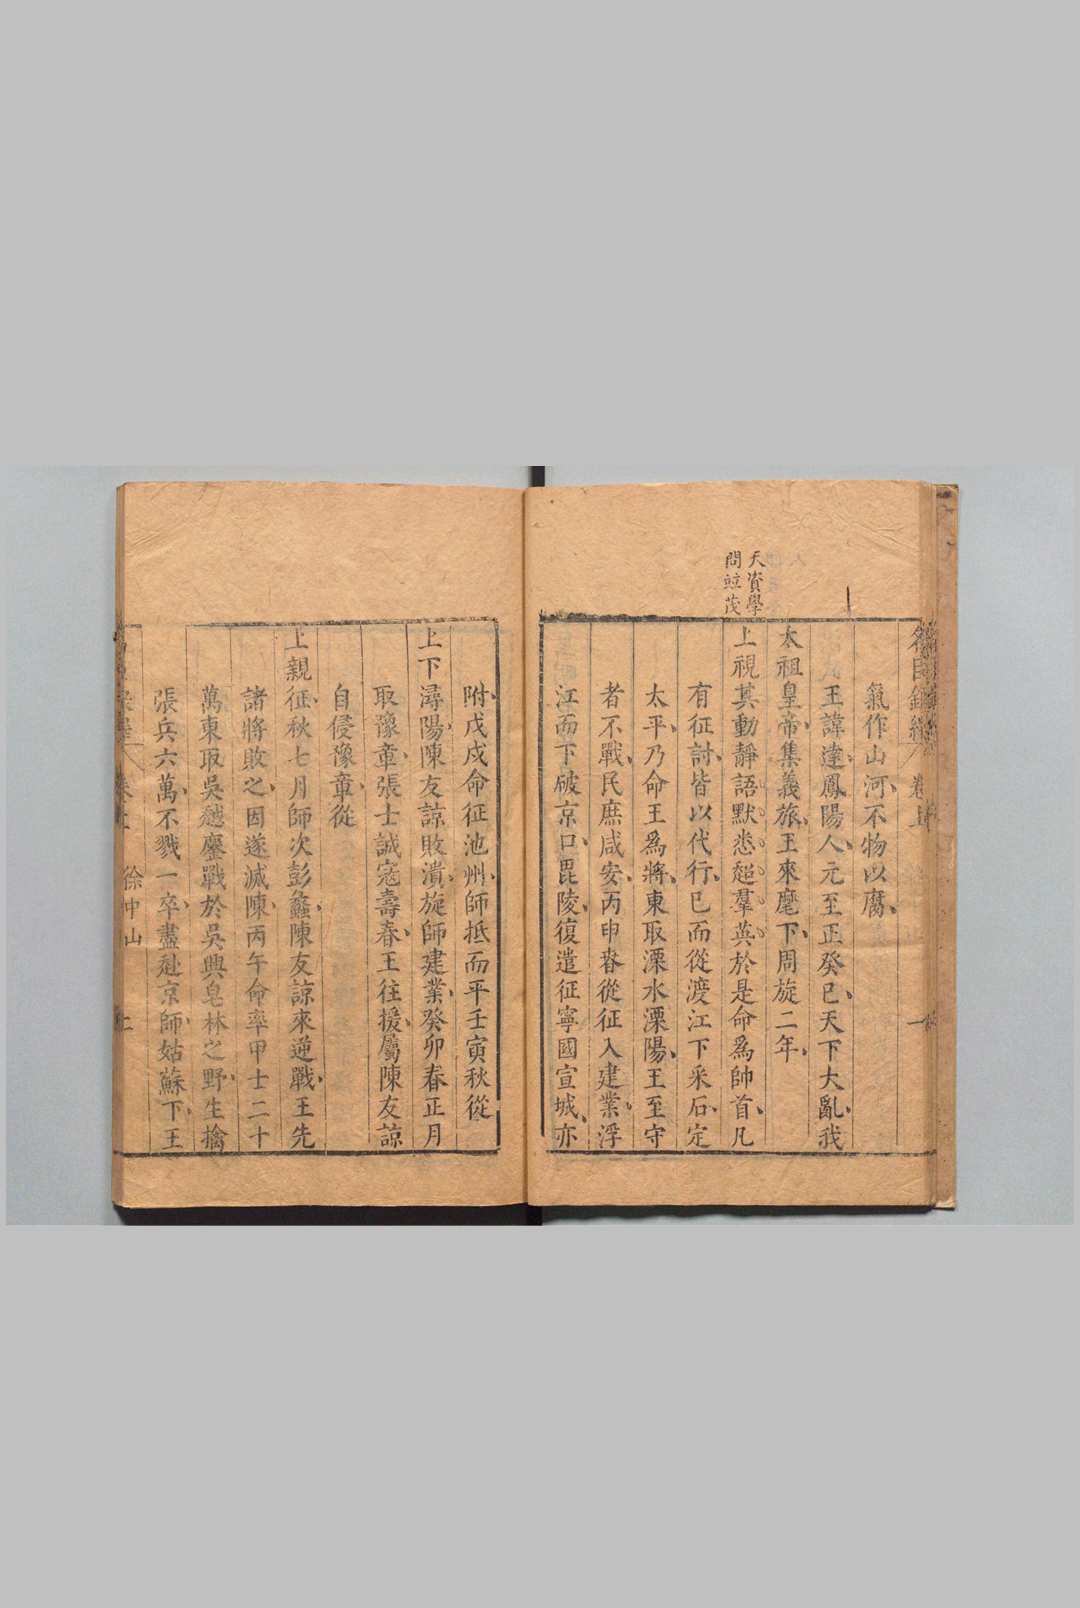 天資學
問竝茂
氣作山河不物以腐
王諱達鳳陽人元至正癸巳天下大亂我
太祖皇帝集義旅王來麾下周旋二年
上視其動靜語默悉超羣英於是命爲帥首凡
有征討皆以代行已而從渡江下采石定
太平乃命王爲將東取溧水溧陽王至守
者不戰民庶咸安丙申春從征入建業浮
江而下破京口毘陵復遣征寧國宣城亦
附戊戌命征池州師抵而平壬寅秋從
上下潯陽陳友諒敗潰旋師建業癸卯春正月
取豫章張士誠寇壽春王往援屬陳友諒
自侵豫章從
上親征秋七月師次彭蠡陳友諒來逆戰王先
諸將敗之因遂滅陳丙午命率甲士二十
萬東取吳越鏖戰於吳興皂林之野生擒
張兵六萬不戮一卒盡赴京師姑蘇下王
徐中山